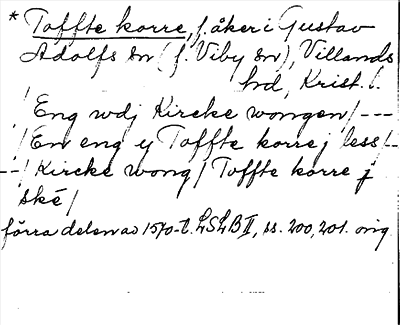 * Toffte korre, f. åker i Gustav
Adolfs sn (f. Viby sn), Villands
hd, Krist. l.
/ Eng wdj Kircke wongen / ---
/ En eng y Toffte korre j less / --
--/ Kircke wong / Toffte korre j
ske /
förra delen av 1570-t. LSLB II, ss. 200, 201. orig.